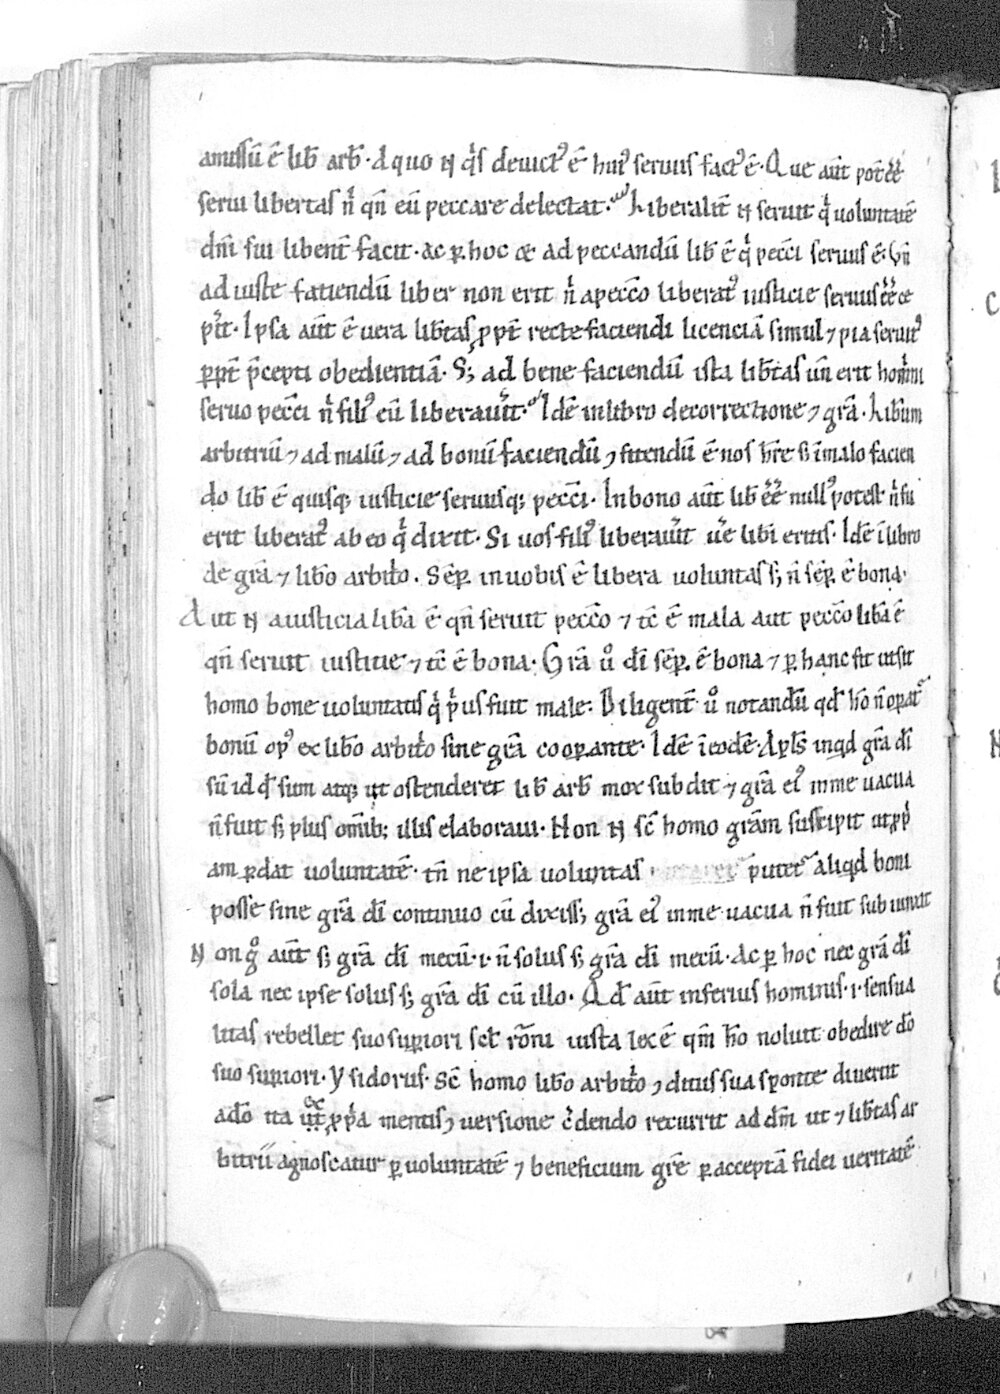 amissū ē lib̄ arb̄. A quo n̄ qͥs deuictꝰ ē huiꝰ seruus factꝰ ē. Que aūt pot̄ eē̄
serui libertas n̄ qn̄ eū peccare delectat. Liberalit̄ n̄ seruit qͥ uoluntatē
dn̄i sui libent̄ facit. ac ꝑ hoc & ad peccandū lib̄ ē qͥ pecc̄i seruus ē. Un̄
ad iuste fatiendū liber non erit n̄ a pecc̄o liberatꝰ iusticie seruus eē̄ ce
p̄it. Ipsa aūt ē uera lib̄tas ꝓpt̄ recte faciendi licenciā simul ⁊ pia seruitꝰ
ꝓpt̄ p̄cepti obedientiā. Sꝫ ad bene faciendū ista lib̄tas un̄ erit homini
seruo pecc̄i n̄ filiꝰ eū liberauit. Idē in libro de correctione ⁊ grā. Lib̄um
arbitriū ⁊ ad malū ⁊ ad bonū faciendū ꝯfitendū ē nos hr̄e sꝫ ī malo facien
do lib̄ ē quisqꝫ iusticie seruusqꝫ pecc̄i. In bono aūt lib̄ eē̄ nullꝰ potest n̄ fu
erit liberatꝰ ab eo qͥ dixit. Si uos filiꝰ liberauīt ūe lib̄i eritis. Idē ī libro
de grā ⁊ lib̄o arbit̄o. Sēꝑ in uobis ē libera uoluntas sꝫ n̄ sēꝑ ē bona.
Aut n̄ a iusticia lib̄a ē qn̄ seruit pecc̄o ⁊ tc̄ ē mala aut pecc̄o lib̄a ē
qn̄ seruit iusticie ⁊ tc̄ ē bona. Grā uͦ dī sēꝑ ē bona ⁊ ꝑ hanc fit ut sit
homo bone uoluntatis qͥ p̄us fuit male. Diligent̄ uͦ notandū qd̄ hō n̄ oꝑatꝰ
bonū opꝰ ex lib̄o arbit̄o sine grā cooꝑante. Idē ī eodē. Apl̄s inqd grā dī
sū id qd̄ sum atqꝫ ut ostenderet lib̄ arb̄ mox subdit ⁊ grā eiꝰ in me uacua
n̄ fuit sꝫ plus om̄ibꝫ illis elaboraui. Non n̄ sc̄ homo grām suscipit ut ꝓp̄
am ꝑdat uoluntatē. tn̄ ne ipsa uoluntas putet̄ aliqd boni
posse sine grā dī continuo cū dixissꝫ grā eiꝰ in me uacua n̄ fuit subiunxit
Non gͦ aūt sꝫ grā dī mecū .i. n̄ solus sꝫ grā dī mecū. Ac ꝑ hoc nec grā dī
sola nec ipse solus sꝫ grā dī cū illo. Qd̄ aūt inferius hominis .i. sensua
litas rebellet suo suꝑiori scl̄ rōni iusta lex ē qm̄ hō noluit obedire dō
suo suꝑiori. Ysidorus. Sc̄ homo lib̄o arbit̄o ꝯditus sua sponte diuertit
a dō ita ex ꝓp̄a mentis ꝯuersione c̄dendo recurrit ad dm̄ ut ⁊ lib̄tas ar
bitrii agnoscatur ꝑ uoluntatē ⁊ beneficium gr̄e ꝑ acceptā fidei ueritatē